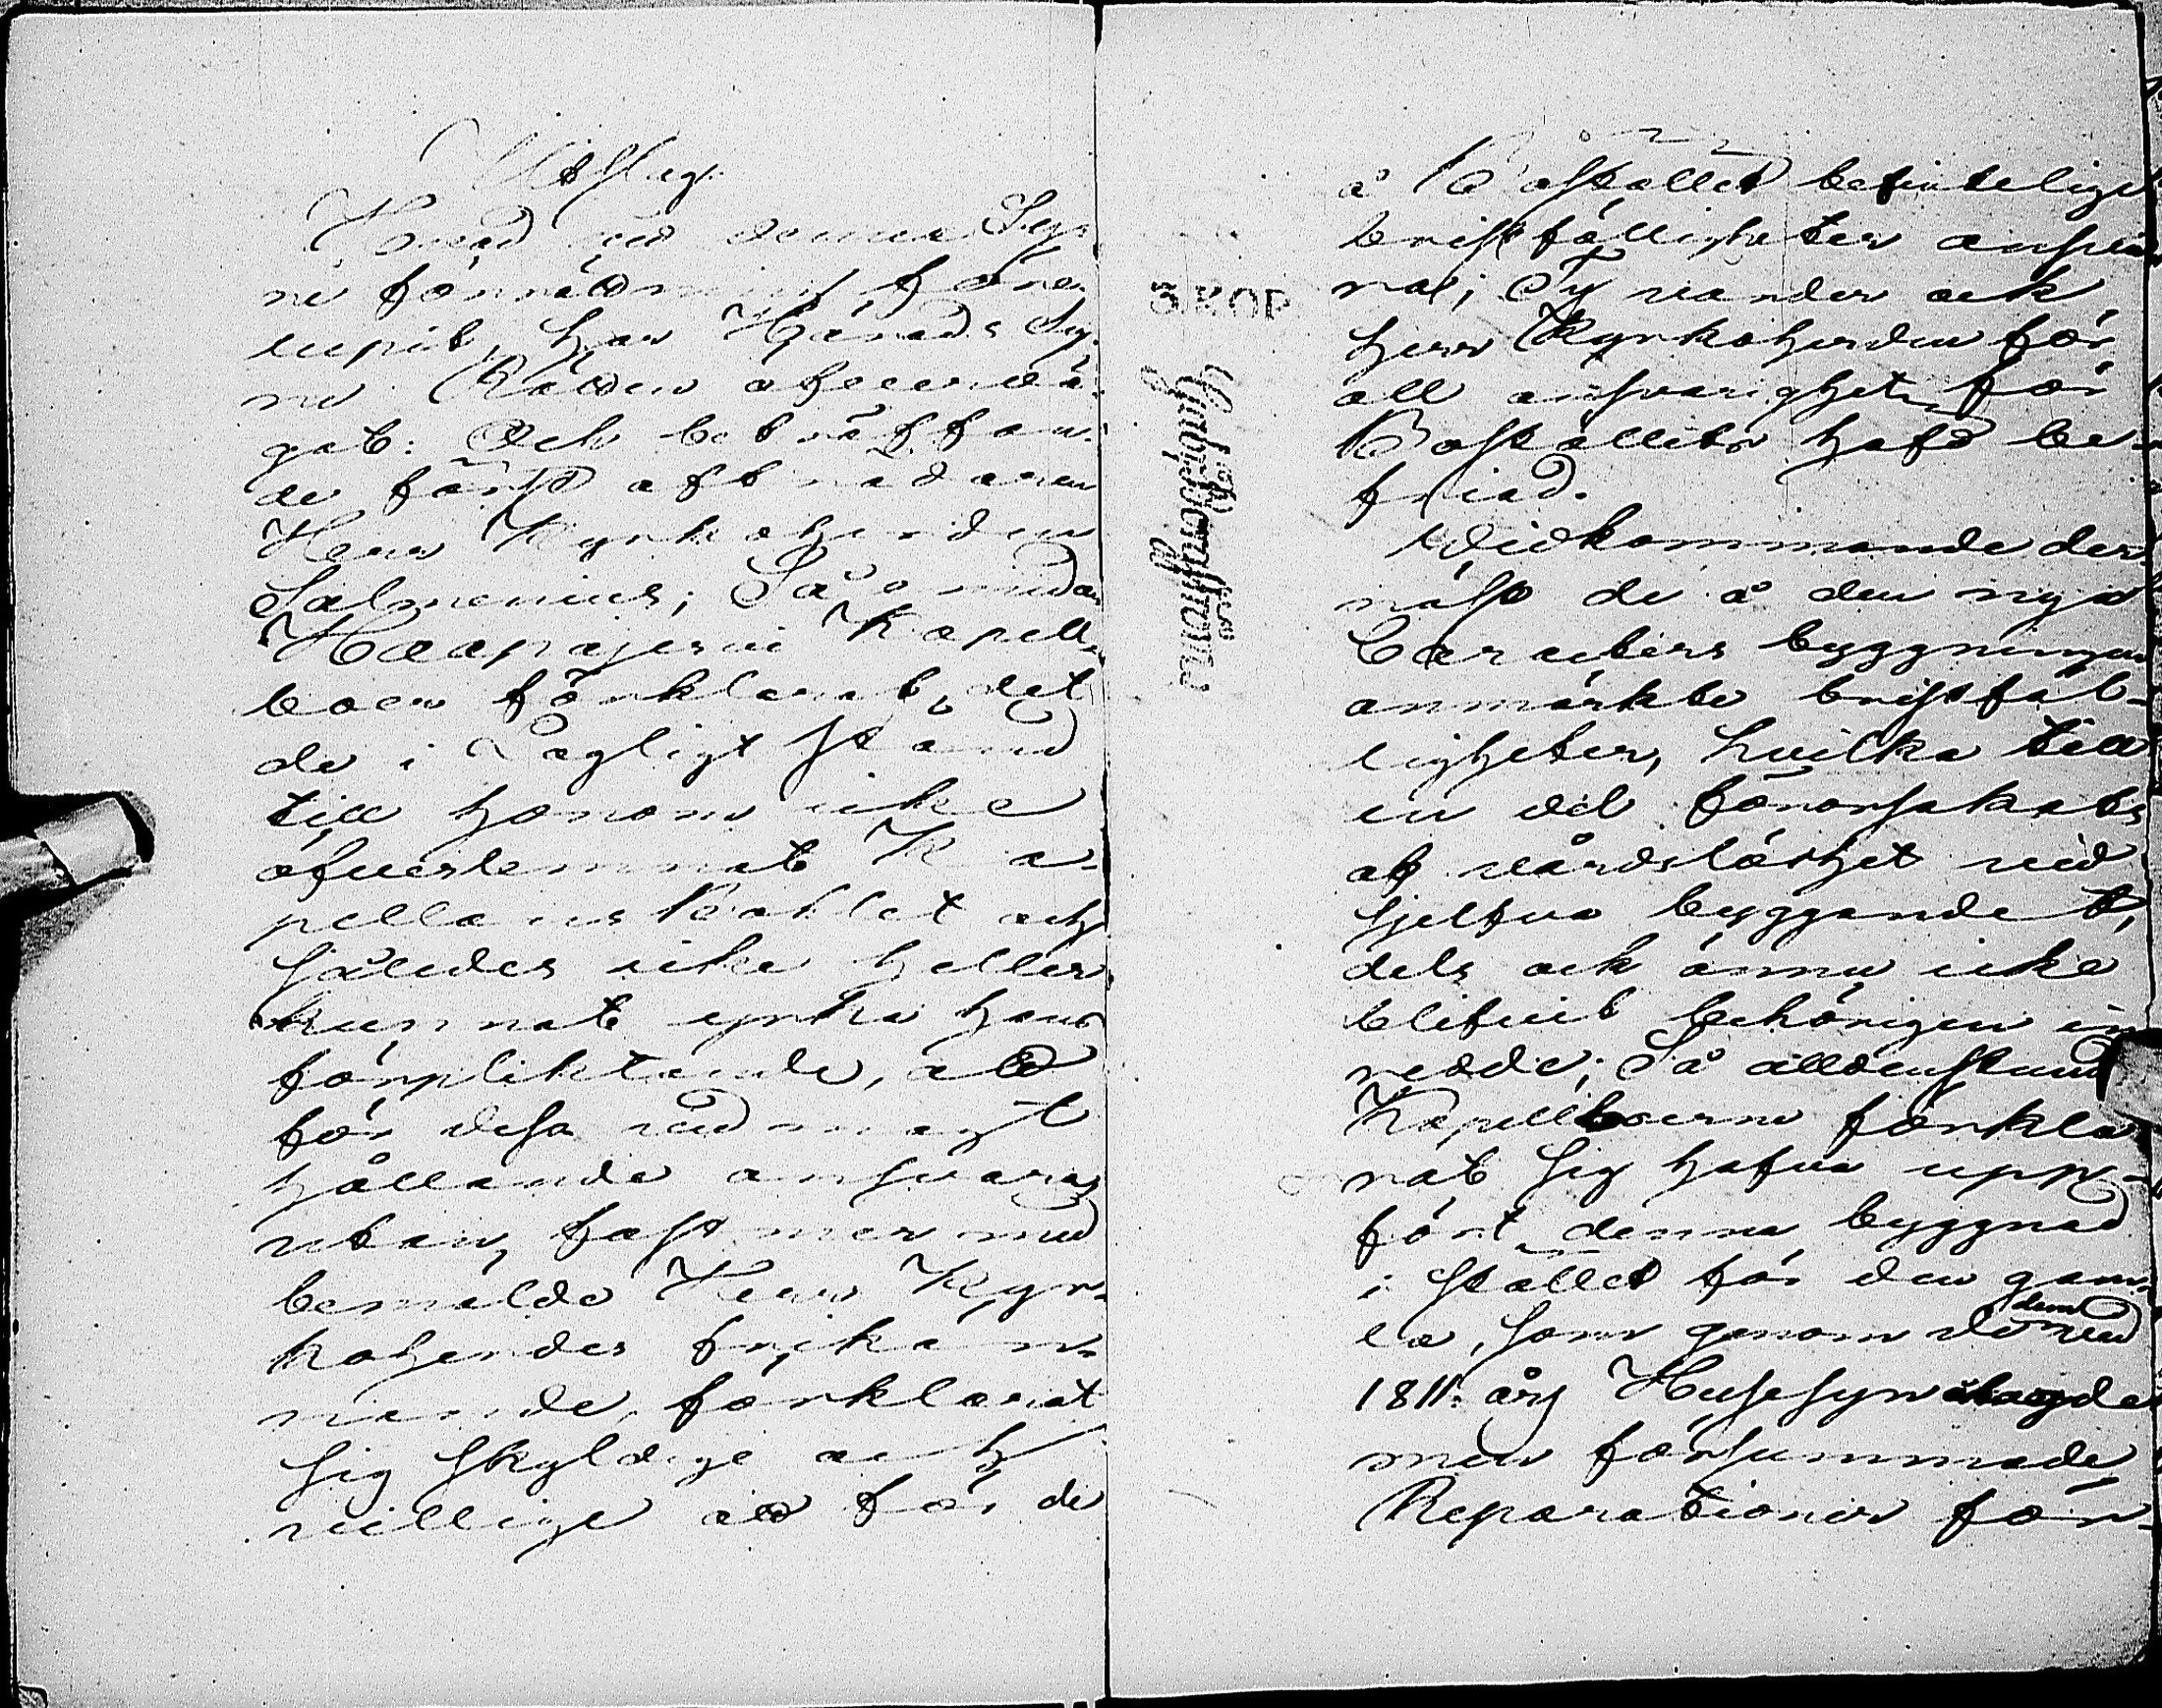 Utslag.
Hvad vid denna Sy-
ne förrättning före-
lupit, har Härads Sy-
ne Rätten öfvervä-
gat: Och beträffan-
de först afträdaren
Herr Kyrkoherden
Salmenius; Så emedan
Haapajervi Kapell-
boer förklarat, det
de i lagligt stånd
till honom icke
öfverlemnat Ka-
pellans Bohlet och
således icke heller
kunnat yrka hans
förpliktande, att
för dess vid magt
hållande ansvara,
utan, fast mer med
bemälde Herr Kyr-
koherdes frikän-
nande, förklarat
sig skyldige och
villige att för de
å Bostället befintelige
bristfälligheter ansva-
ra; Ty varder ock
herr Kyrkoherden för
all ansvarighet för
Boställets häfd be-
friad.
Vidkommande der
näst de å den nya
Caracters byggningen
anmärkte bristfäl-
ligheter, hvilka till
en del förorsakats
af vårdslöshet vid
sjelfva byggandet,
dels ock ännu icke
blifvit behörigen in
redde; Så alldenstund
Kapellboerne förkla
rat sig hafva upp-
fört denna byggnad
i stället för den gam-
la, som genom de dem vid
1811. års Husesyn ålagde
men försummade
Reparationer för-
5 KOP